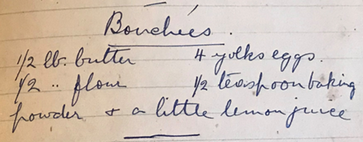 Bouchées.
1/2 lb. butter 4 yolks eggs.
1/2 " flour 1/2 teaspoon baking
powder & a little lemon juice